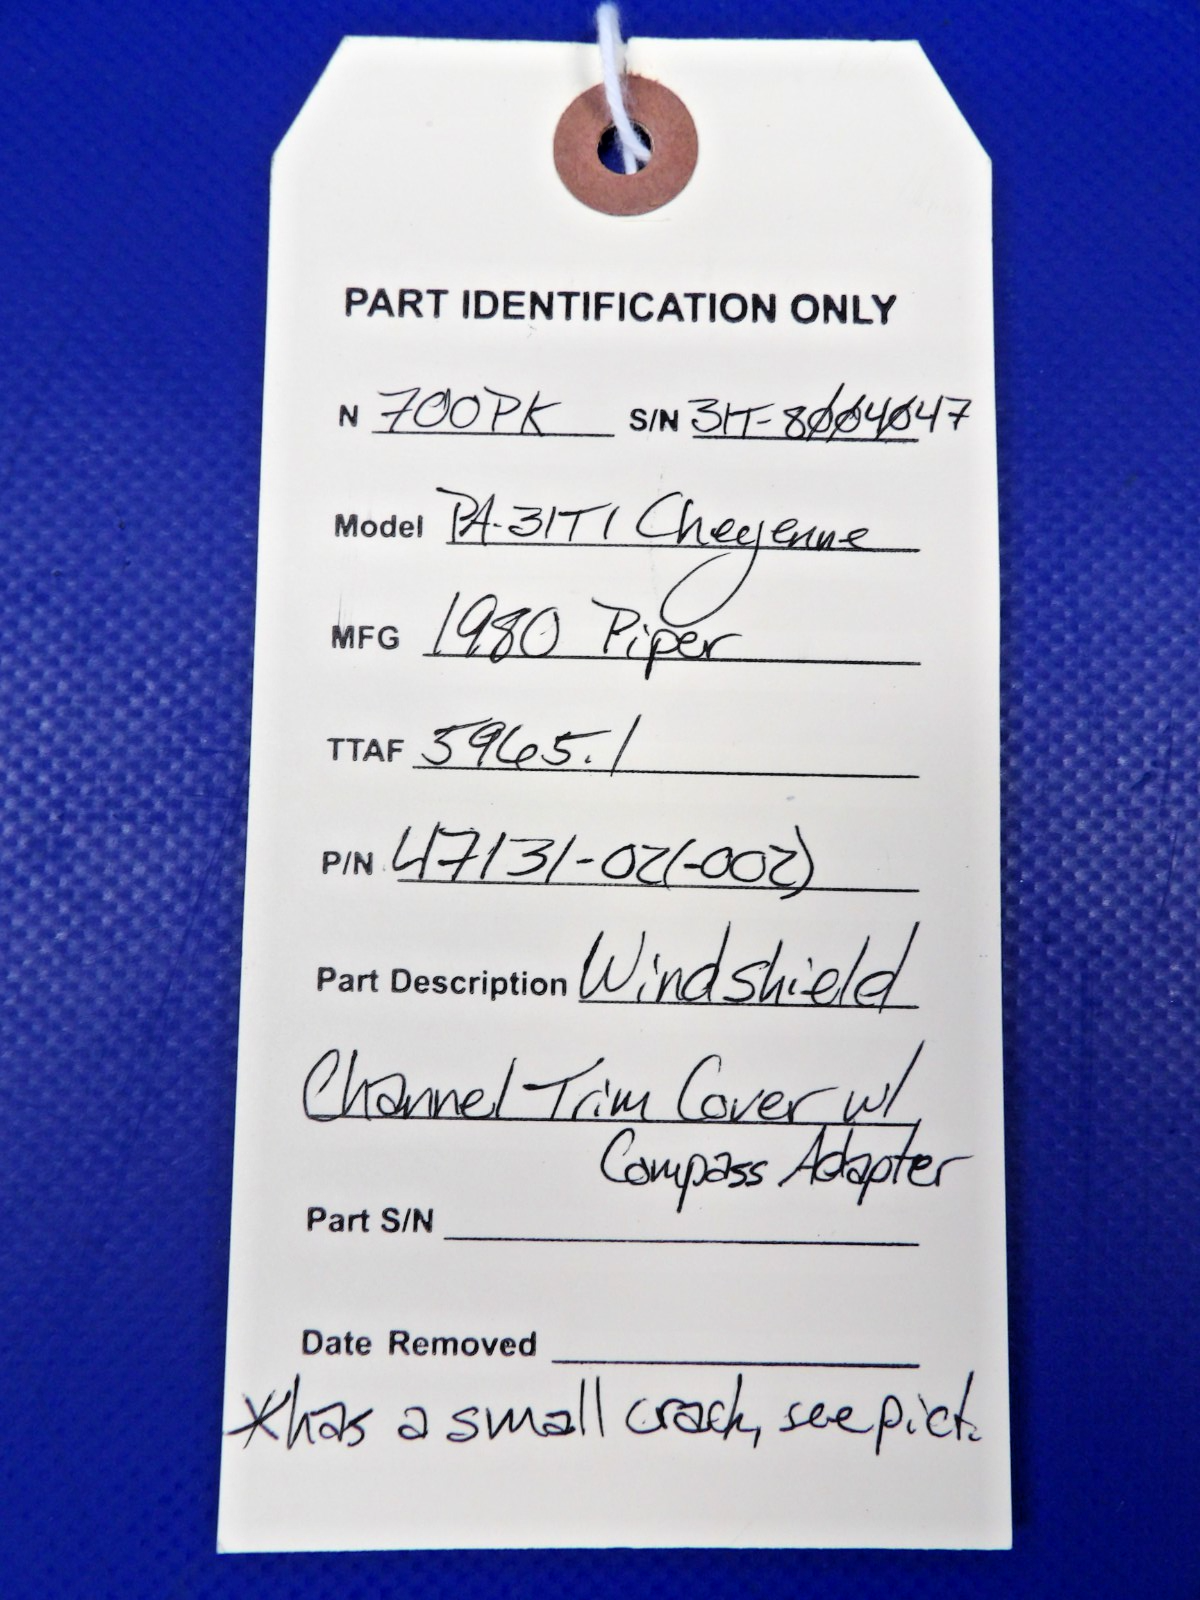 PART IDENTIFICATION ONLY
N 700PK S/N 31T-8004047
Model PA-31T1 Cheyenne
MFG 1980 Piper
TTAF 5965.1
P/N 47131-02(-002)
Part Description Windshield
Channel Trim Cover w/
Compass Adapter
Part S/N
Date Removed
*has a small crack, see pict.